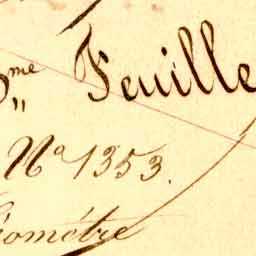 me Feuille
Na 1353.
éomètre